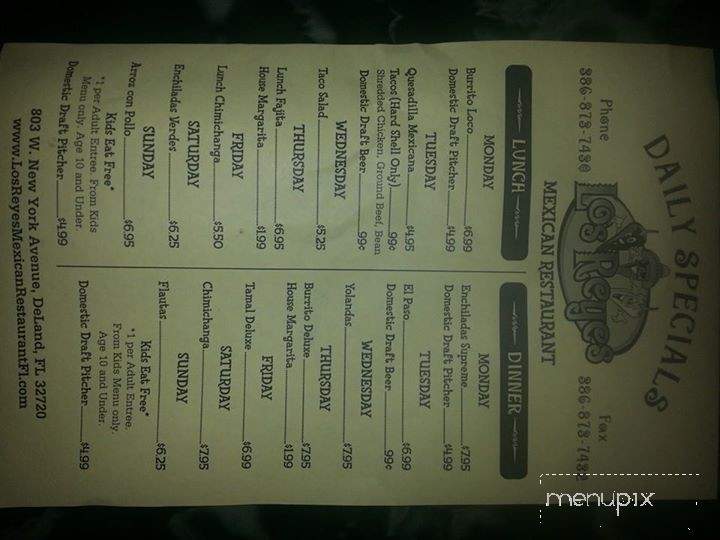 DAILY SPECIALS
Phone
386-873-7480
Los Reyes
Fax
386-873-7482
MEXICAN RESTAURANT
LUNCH
MONDAY
Burrito Loco $6.99
Domestic Draft Pitcher $4.99
TUESDAY
Quesadilla Mexicana $4.95
Tacos (Hard Shell Only) 99¢
Shredded Chicken, Ground Beef, Bean
Domestic Draft Beer 99¢
WEDNESDAY
Taco Salad $5.25
THURSDAY
Lunch Fajita $6.95
House Margarita $1.99
FRIDAY
Lunch Chimichanga $5.50
SATURDAY
Enchiladas Verdes $6.25
SUNDAY
Arroz con Pollo $6.95
Kids Eat Free*
*1 per Adult Entree. From Kids
Menu only. Age 10 and Under.
Domestic Draft Pitcher $4.99
DINNER
MONDAY
Enchiladas Supreme $7.95
Domestic Draft Pitcher $4.99
TUESDAY
El Paso $6.99
Domestic Draft Beer 99¢
WEDNESDAY
Yolandas $7.95
THURSDAY
Burrito Deluxe $7.95
House Margarita $1.99
FRIDAY
Tamal Deluxe $6.99
SATURDAY
Chimichanga $7.95
SUNDAY
Flautas $6.25
Kids Eat Free*
*1 per Adult Entree.
From Kids Menu only.
Age 10 and Under.
Domestic Draft Pitcher $4.99
803 W. New York Avenue, DeLand, FL 32720
www.LosReyesMexicanRestaurantFl.com
menupix